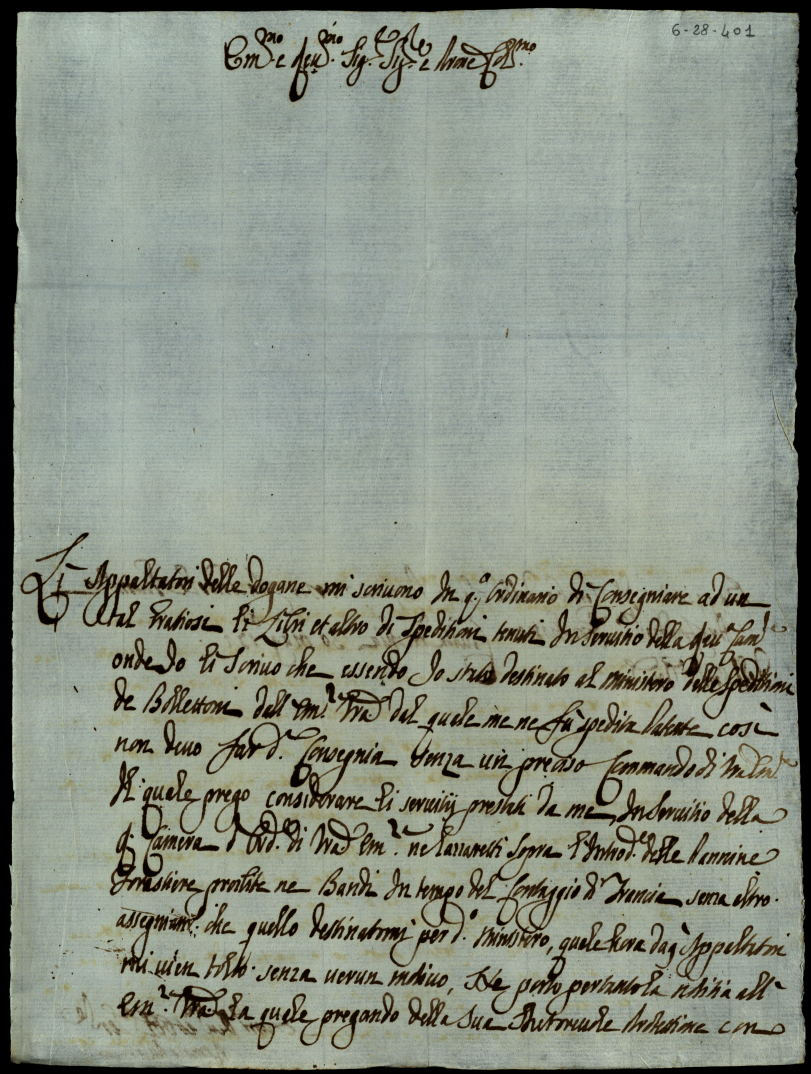 6-28-401
Em.mo e Reu.mo Sig.re Sig.re e Prone Col.mo
Li Appaltatori delle dogane mi scriuono In q.o Ordinario di Consegniare ad un
tal Gratiosi li Libri et altro di Speditioni tenuti In Seruitio della Reu. Cam.
onde Io li Scriuo che essendo Io stato destinato al ministero delle Speditioni
de Bollettoni dall Em.a V.ra dal quale me ne fù spedita Patente così
non deuo far d.a Consegnia senza un preciso Commando di V.ra Em.a
Il quale prego considerare li seruitij prestati da me, In Seruitio della
R. Camera d Ord.e di V.ra Em.a ne Lazzaretti sopra l'Introd.e delle Pannine
forastiere proibite ne Bandi In tempo del Contaggio di Francia senza altro
assegniam.o che quello destinatomi per d.o ministero, quale hora dagl Appaltatori
mi uien tolto senza uerun motiuo, Ne porto pertanto la notitia all
Em.a V.ra la quale pregando della Sua Autoreuole Protettione con